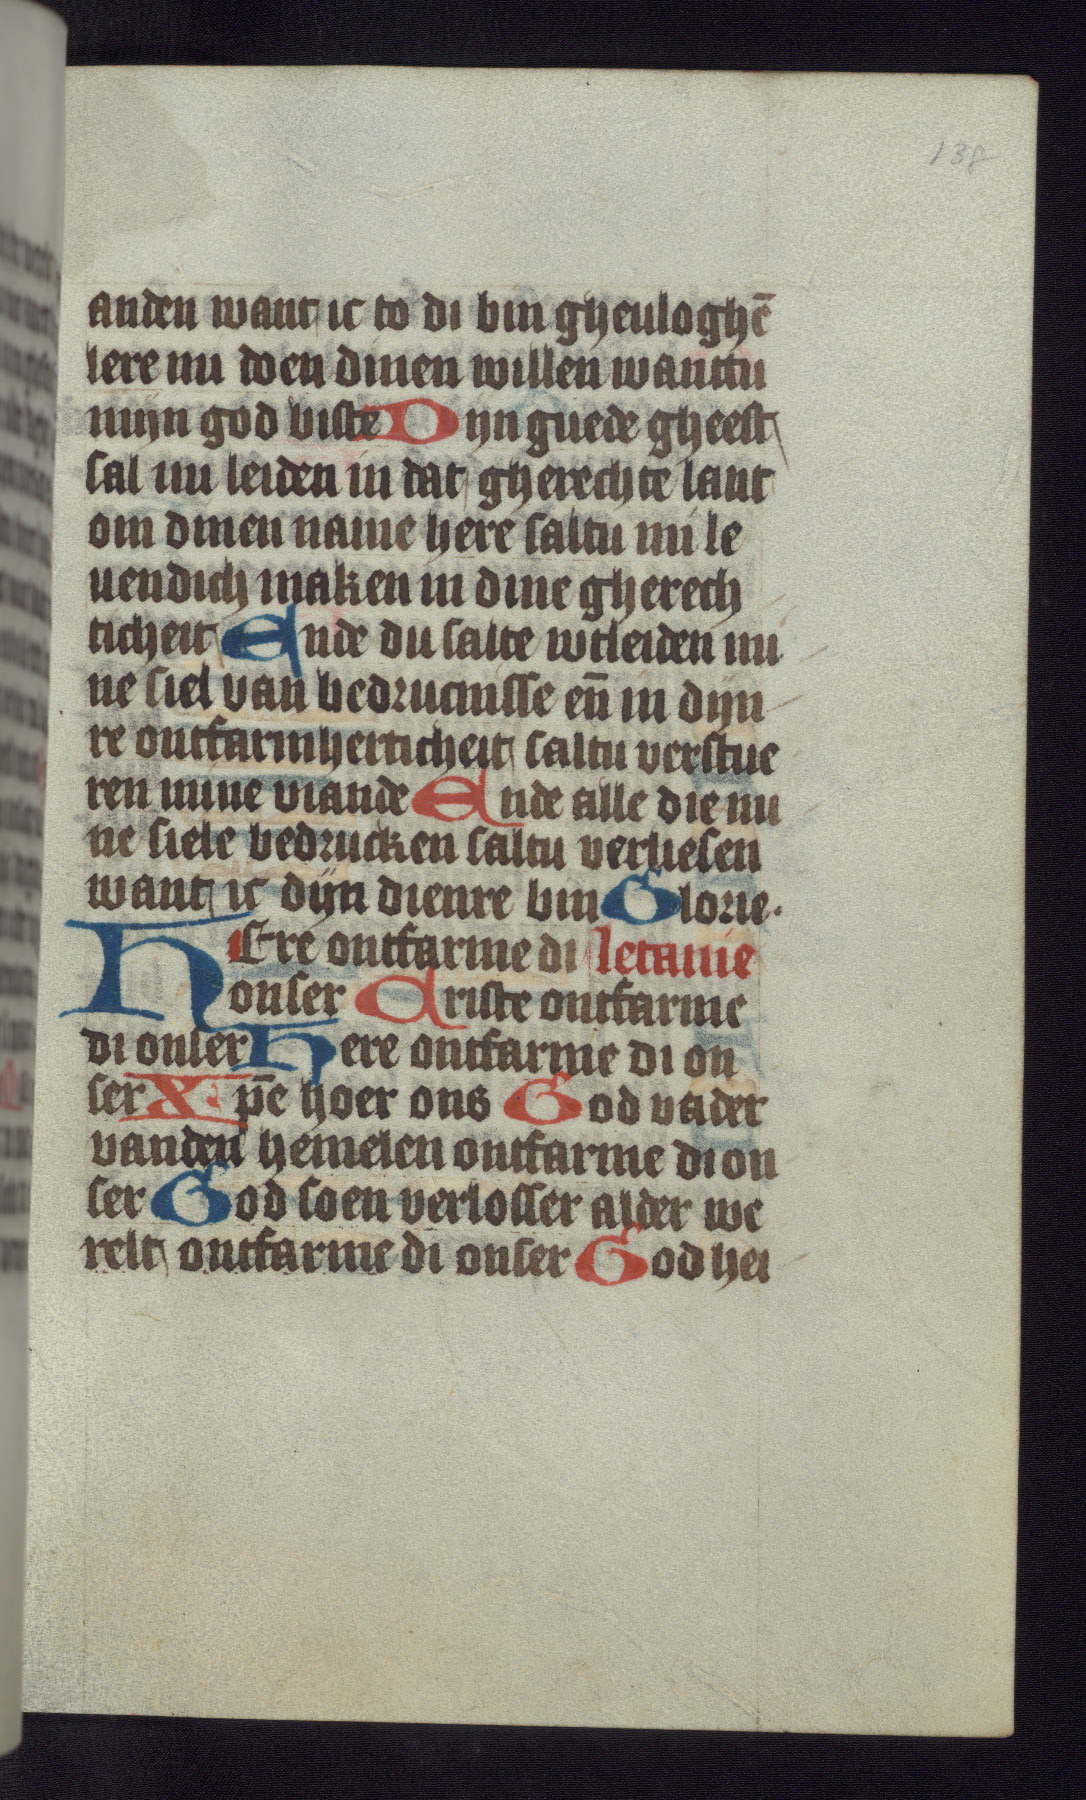 138
anden want ic to di bin gheuloghē
lere mi doen dinen willen wanttu
mijn god biste Dijn guede gheest
sal mi leiden in dat gherechte lant
om dinen name here saltu mi le
uendich maken in dine gherech
ticheit Ende du salte wtleiden mi
ne siel van bedrucnisse en̄ in dijn
re ontfarmherticheit saltu verstue
ren mine viande Ende alle die mi
ne siele bedrucken saltu verliesen
want ic dijn dienre bin Glorie.
HEre ontfarme di letanie
onser Criste ontfarme
di onser Here ontfarme di on
ser Xp̄e hoer ons God vader
vanden hemelen ontfarme di on
ser God soen verlosser alder we
relt ontfarme di onser God hei